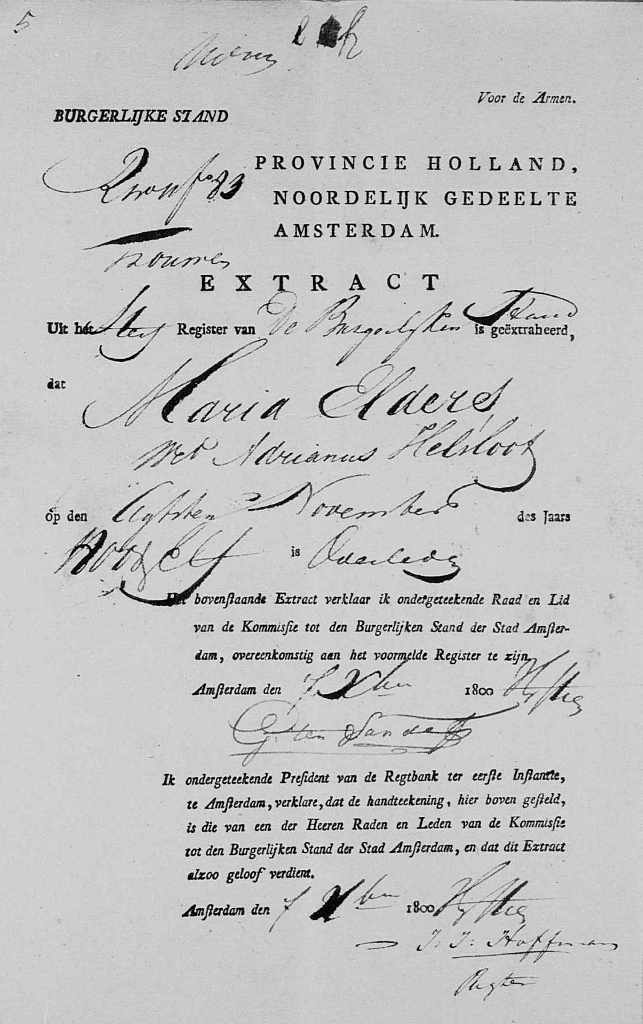 5
Voor de Armen.
BURGERLIJKE STAND
PROVINCIE HOLLAND,
NOORDELIJK GEDEELTE
AMSTERDAM.
Trouwen
EXTRACT
Uit het Sterf Register van De Burgerlijken Stand is geëxtraheerd,
dat Maria Elders
Wed Adrianus Helsloot
op den Agtsten November des Jaars
1800 Elf is Overleden
Het bovenstaande Extract verklaar ik ondergeteekende Raad en Lid
van de Kommissie tot den Burgerlijken Stand der Stad Amster-
dam, overeenkomstig aan het voormelde Register te zijn.
Amsterdam den 7 Xber 1800 Vyftien
Ik ondergeteekende President van de Regtbank ter eerste Instantie,
te Amsterdam, verklare, dat de handteekening, hier boven gesteld,
is die van een der Heeren Raden en Leden van de Kommissie
tot den Burgerlijken Stand der Stad Amsterdam, en dat dit Extract
alzoo geloof verdient.
Amsterdam den 7 Xber 1800 Vyftien
J. J. Hoffman
Regter